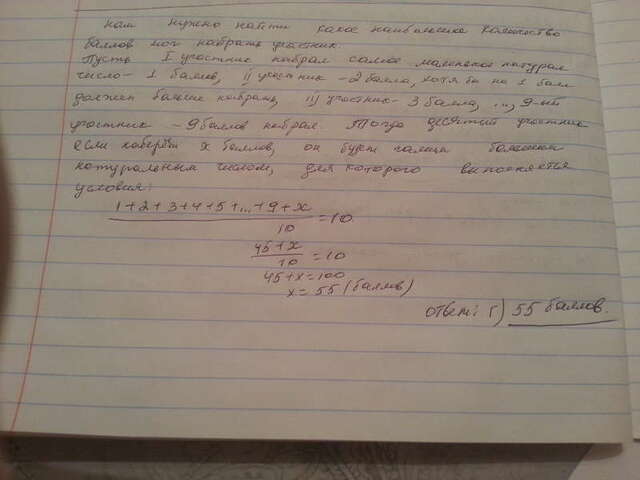 нам нужно найти какое наибольшее количество
баллов мог набрать участник.
Пусть I участник набрал самое маленькое натурал
число - 1 баллов, II участник - 2 балла, хотя бы на 1 балл
должен больше набрать, III участник - 3 балла, ..., 9-ый
участник - 9 баллов набрал. Тогда десятый участник
если наберёт x баллов, он будет самым большим
натуральным числом, для которого выполняется
условия:
1+2+3+4+5+...+9+x
10
=10.
45+x
10
=10
45+x=100
x=55 (баллов)
ответ: Г) 55 баллов.